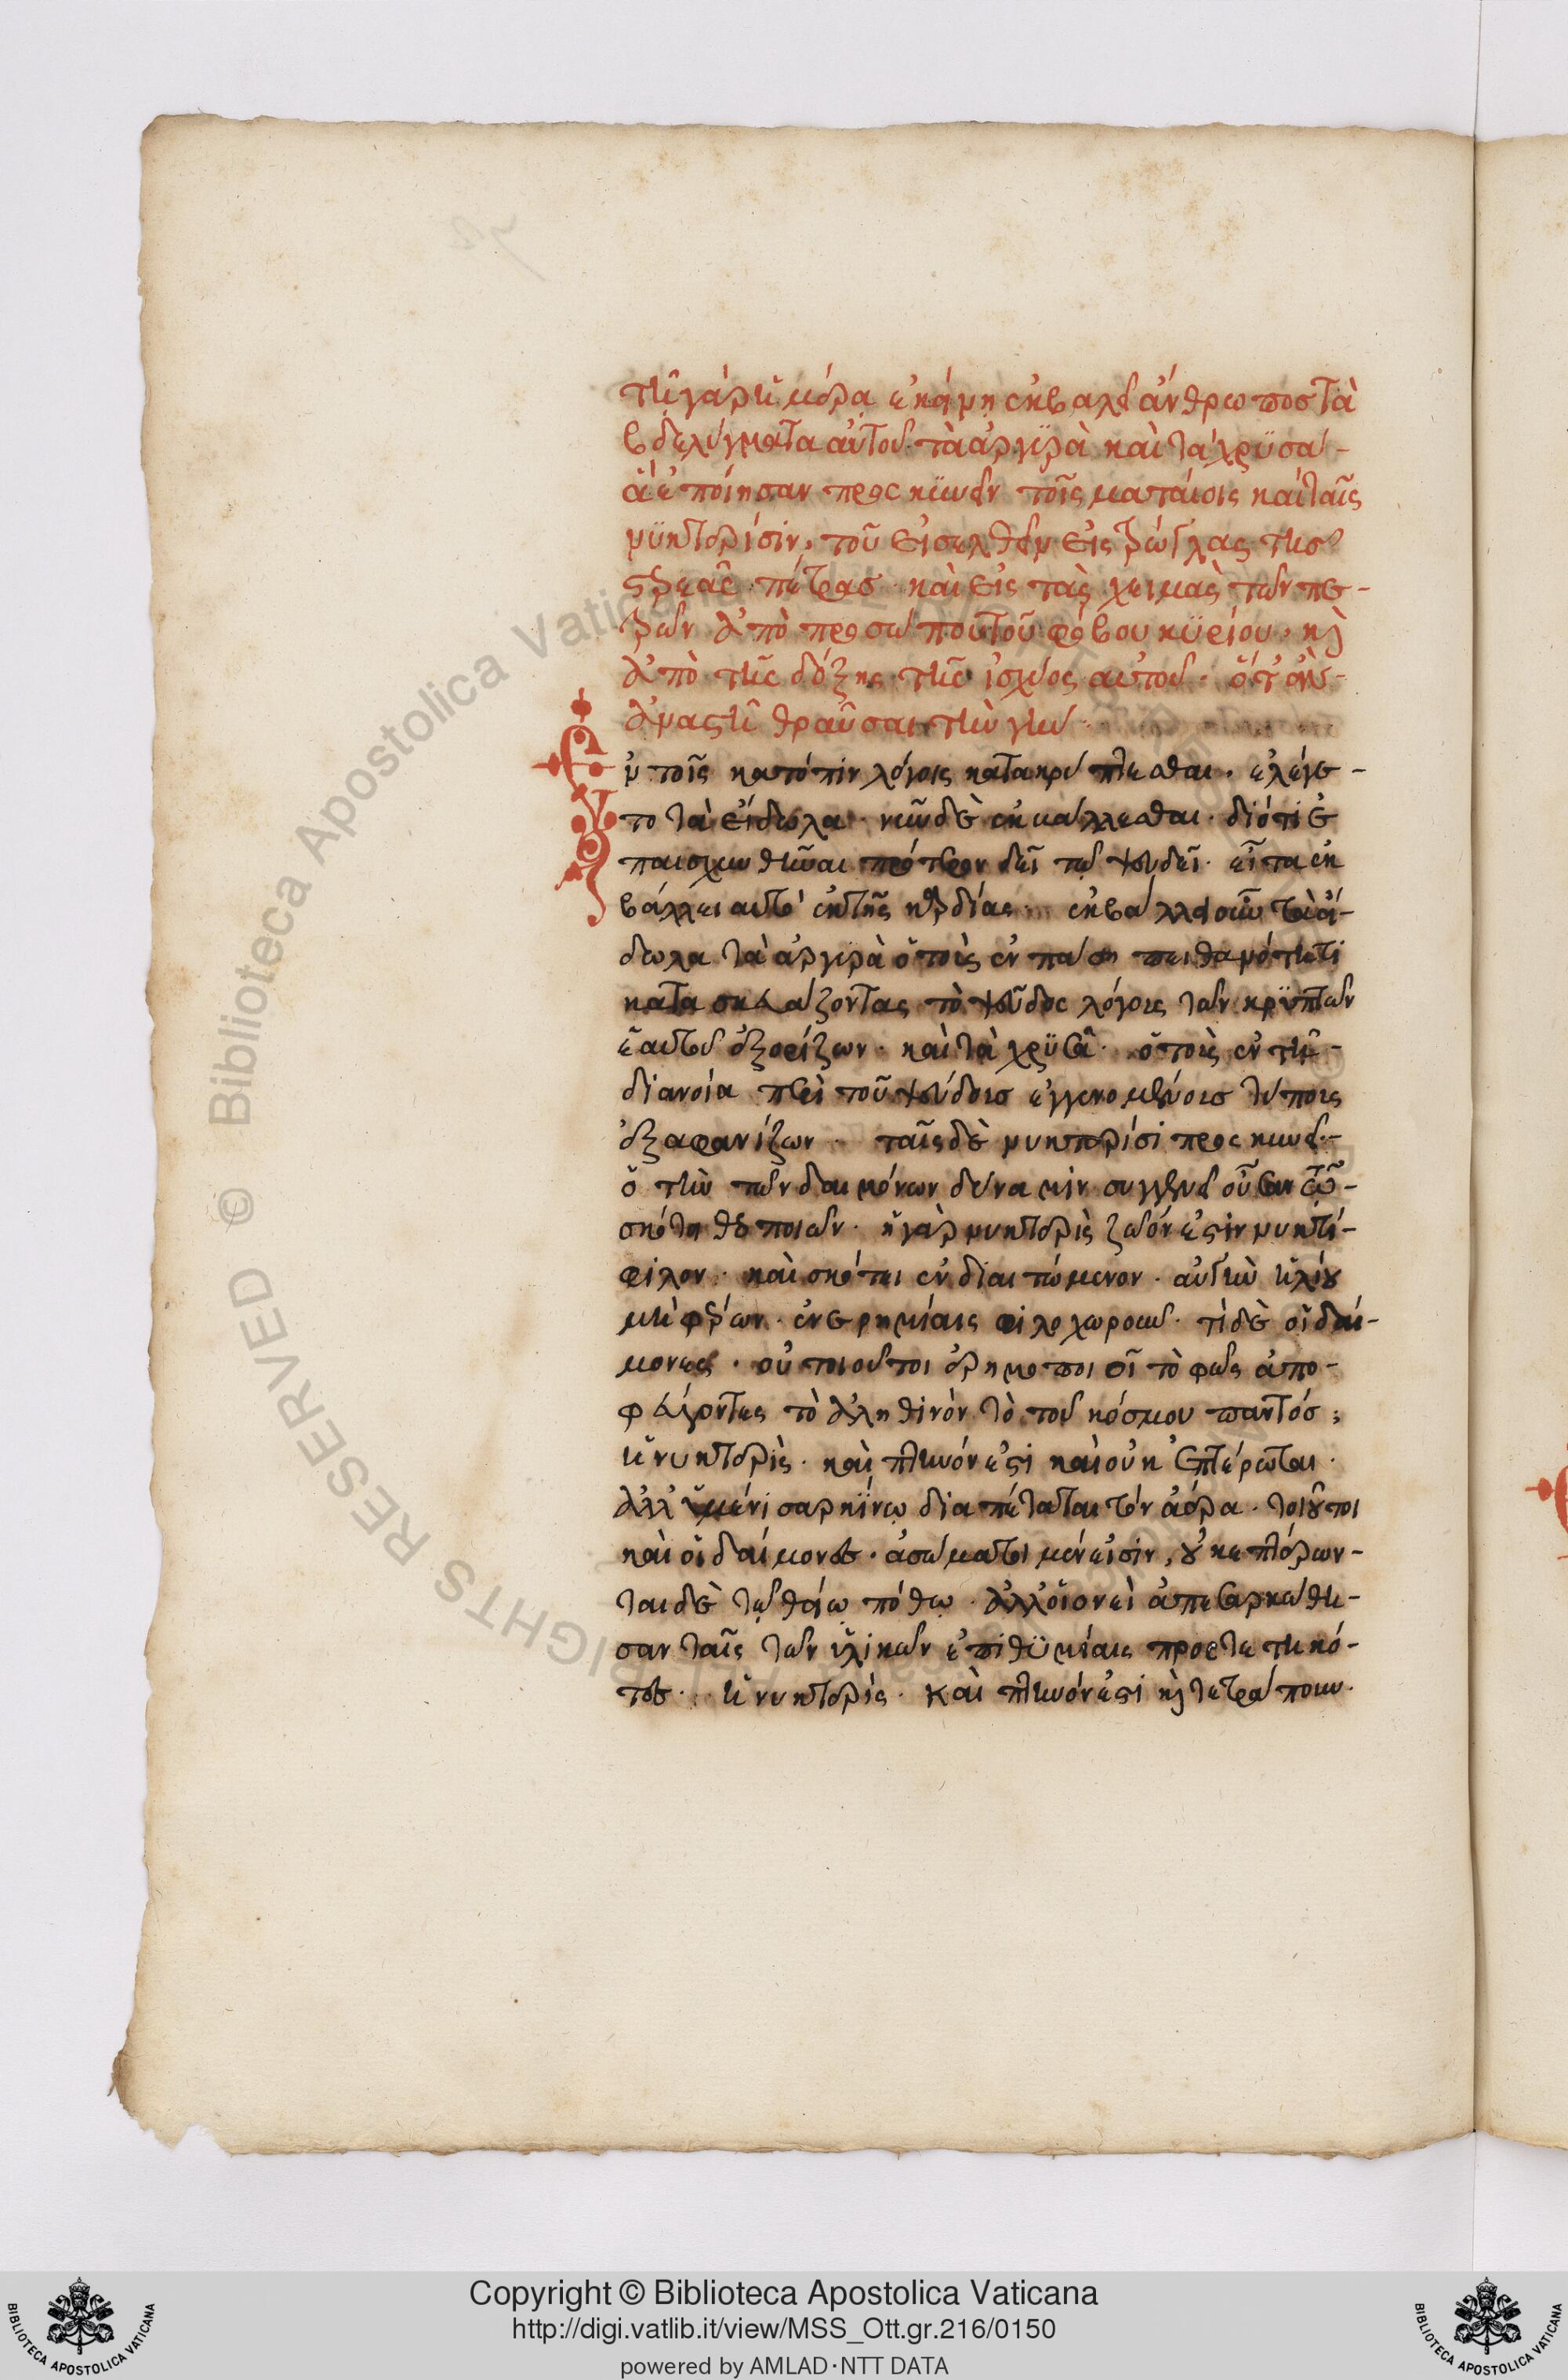 τῆ γὰρ ἡμέρα ἐκείνη ἐκβαλεῖ ἄνθρωπος τὰ
βδελύγματα αὐτοῦ τὰ ἀργυρὰ καὶ τὰ χρυσᾶ -
ἃ ἐποίησαν προσκυνεῖν τοῖς ματαίοις καὶ ταῖς
νυκτερίσιν, τοῦ εἰσελθεῖν εἰς τρώγλας τῆς
στερεᾶς πέτρας· καὶ εἰς τὰς χισμὰς τῶν πε-
τρῶν ἀπὸ προσώπου τοῦ φόβου κυρίου, κὶ
ἀπὸ τῆς δόξης τῆς ἰσχύος αὐτοῦ· ὅταν
ἀναστῆ θραῦσαι τὴν γῆν
Ἐν τοῖς κατόπιν λόγοις κατακρύπτεσθαι. ἐλέγε-
το τὰ εἴδωλα· νῦν δὲ ἐκβάλλεσθαι· διότι ἐ
παισχυνθῆναι πρότερον δεῖ τῶ ψευδεῖ· εἶτα ἐκ
βάλλει αὐτὸ ἐκ τῆς καρδίας· ἐκβάλλει οὖν τὰ εἴ-
δωλα τὰ ἀργυρὰ ὁ τοὺς ἐν πάση πειθανότητι
κατασκευάζοντας τὸ ψεῦδος λόγοις τῶν κρυπτῶν
ἑαυτοῦ ἐξορίζων· καὶ τὰ χρυσᾶ· ὁ τοὺς ἐν τῆ -
διανοία περὶ τοῦ ψεύδους ἐγγενομένους τύπους
ἐξαφανίζων· ταῖς δὲ νυκτερίσι προσκυνεῖ -
ὁ τὴν τῶν δαιμόνων δύναμιν συγγενῆ οὖσαν τῶ -
σκότη θεοποιῶν· ἡ γὰρ νυκτερὶς ζωόν ἐστιν νυκτί-
φιλον· καὶ σκότει ἐνδιαιτώμενον· αὐγὴν ἡλίου
μὴ φέρων· ἐν ἐρημίαις φιλοχωροῦν· τί δὲ οἱ δαί-
μονες· οὐ τοιοῦτοι ἐρημοποιοῖ τὸ φῶς ἀπο-
φεύγοντες τὸ ἀληθινὸν τὸ τοῦ κόσμου παντός;
ἡ νυκτερὶς· καὶ πτηνόν ἐστι καὶ οὐκ ἐπτέρωται·
ἀλλ' ὑμένι σαρκίνω διαπέταται τὸν ἀέρα· τοιοῦτοι
καὶ οἱ δαίμονες· ἀσώματοι μέν εἰσιν, οὐκ ἐπτέρων-
ται δὲ τῶ θείω πόθω· ἀλλ' οἱονεὶ ἀπεσαρκώθη-
σαν ταῖς τῶν ὑλικῶν ἐπιθυμίαις προστετηκό-
τες· ἡ νυκτερὶς· καὶ πτηνόν ἐστι κὶ τετράπουν·
Copyright © Biblioteca Apostolica Vaticana
http://digi.vatlib.it/view/MSS_Ott.gr.216/0150
powered by AMLAD·NTT DATA